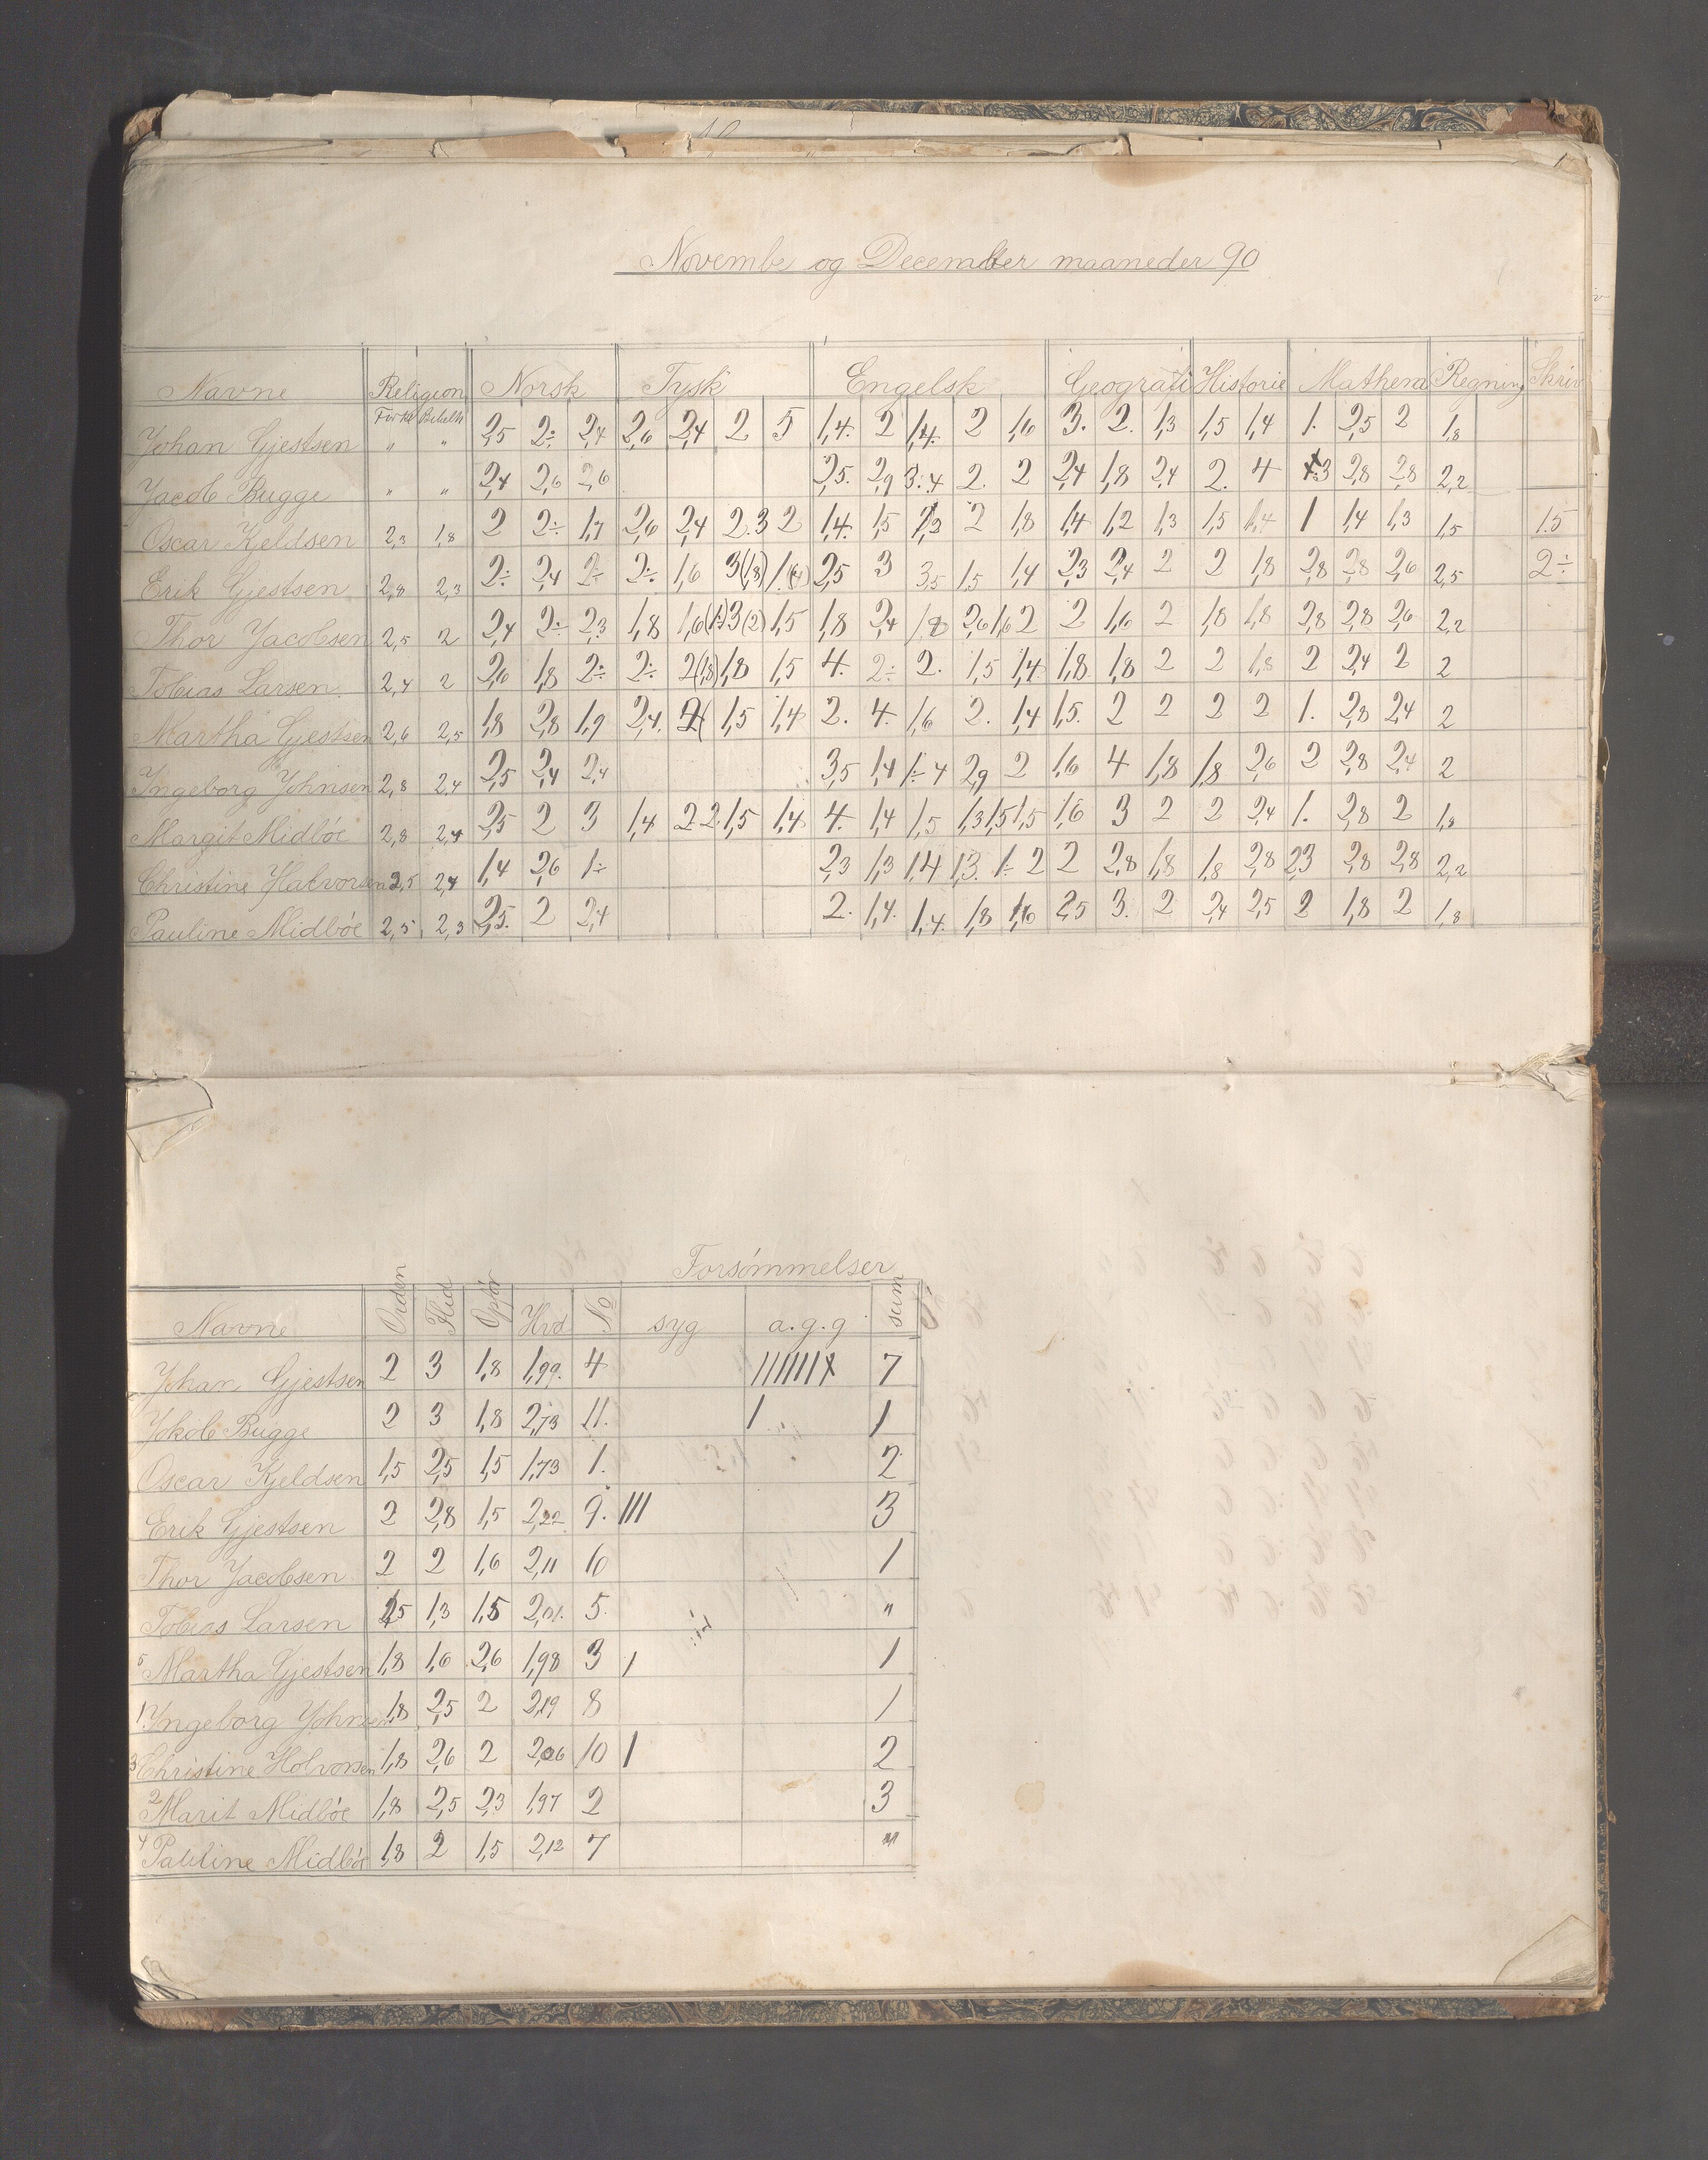 Novembe og December maaneder 90
Navne Religion Norsk Tysk Engelsk Geografi Historie Mathema Regning Skriv
Johan Gjestsen " " 2,5 2÷ 2,4 2,6 2,4 2 5 1,4. 2 1,4. 2 1,6 3. 2. 1,3 1,5 1,4 1. 2,5 2 1,8
Jacob Bugge " " 2,4 2,6 2,6 2,5. 2,9 3.4 2. 2 2,4 1,8 2,4 2. 4 3 2,8 2,8 2,2
Oscar Kjeldsen 2,3 1,8 2 2÷ 1,7 2,6 2,4 2.3 2 1,4. 1,5 2 1,8 1,4 1,2 1,3 1,5 1,4 1 1,4 1,3 1,5 1.5
Erik Gjestsen 2,8 2,3 2÷ 2,4 2÷ 2÷ 1,6 3(1,8) 2,5 3 3,5 1,5 1,4 2,3 2,4 2 2 1,8 2,8 2,8 2,6 2,5 2÷
Thor Jacobsen 2,5 2 2,4 2÷ 2,3 1,8 1,6 3(2) 1,5 1,8 2,4 1,8 2,6 1,6 2 2 1,6 2 1,8 1,8 2,8 2,8 2,6 2,2
Tobias Larsen 2,4 2 2,6 1,8 2÷ 2÷ 2(1,8) 1,8 1,5 4. 2÷ 2. 1,5 1,4 1,8 1,8 2 2 1,8 2 2,4 2 2
Martha Gjestsen 2,6 2,5 1,8 2,8 1,9 2,4. 1,5 1,4 2. 4. 1,6 2. 1,4 1,5. 2 2 2 2 1. 2,8 2,4 2
Ingeborg Johnsen 2,8 2,4 2,5 2,4 2,4 3,5 1,4 1÷4 2,9 2 1,6 4 1,8 1,8 2,6 2 2,8 2,4 2
Margit Midböe 2,8 2,4 2,5 2 3 1,4 2 2 1,5 1,4 4. 1,4 1,5 1,3 1,5 1,5 1,6 3 2 2 2,4 1. 2,8 2 1,8
Christine Halvorsen 2,5 2,4 1,4 2,6 1÷ 2,3 1,3 1,4 1,3. 1÷ 2 2 2,8 1,8 1,8 2,8 2,3 2,8 2,8 2,2
Pauline Midböe 2,5 2,3 2,5. 2 2,4 2. 1,4. 1,4. 1,8 1,6 2,5 3. 2 2,4 2,5 2 1,8 2 1,8
Forsömmelser
Navne Orden Flid Opför Hvd No syg a.g.g sum
Johan Gjestsen 2 3 1,8 1,99. 4 7
Jokob Bugge 2 3 1,8 2,73 11. 1 1
Oscar Kjeldsen 1,5 2,5 1,5 1,73 1. 2
Erik Gjestsen 2 2,8 1,5 2,22 9. III 3
Thor Jacobsen 2 2 1,6 2,11 10 1
Tobias Larsen 1,3 1,5 2,01. 5. "
5 Martha Gjestsen 1,8 1,6 2,6 1,98 3 1 1
1 Ingeborg Johnsen 1,8 2,5 2 2,19 8 1
3 Christine Holvorsen 1,8 2,6 2 2,06 10 1 2
2 Marit Midböe 1,8 2,5 2,3 1,97 2 3
4 Pauline Midböe 1,8 2 1,5 2,12 7 "